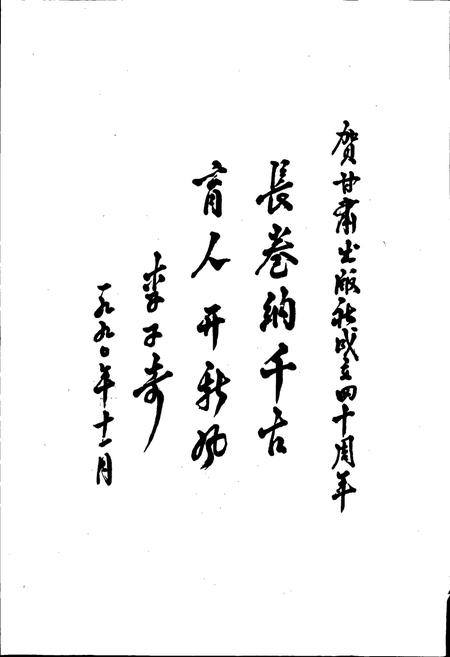 贺甘肃出版社成立四十周年
長卷納千古
育人开新风
李子奇
一九九〇年十一月